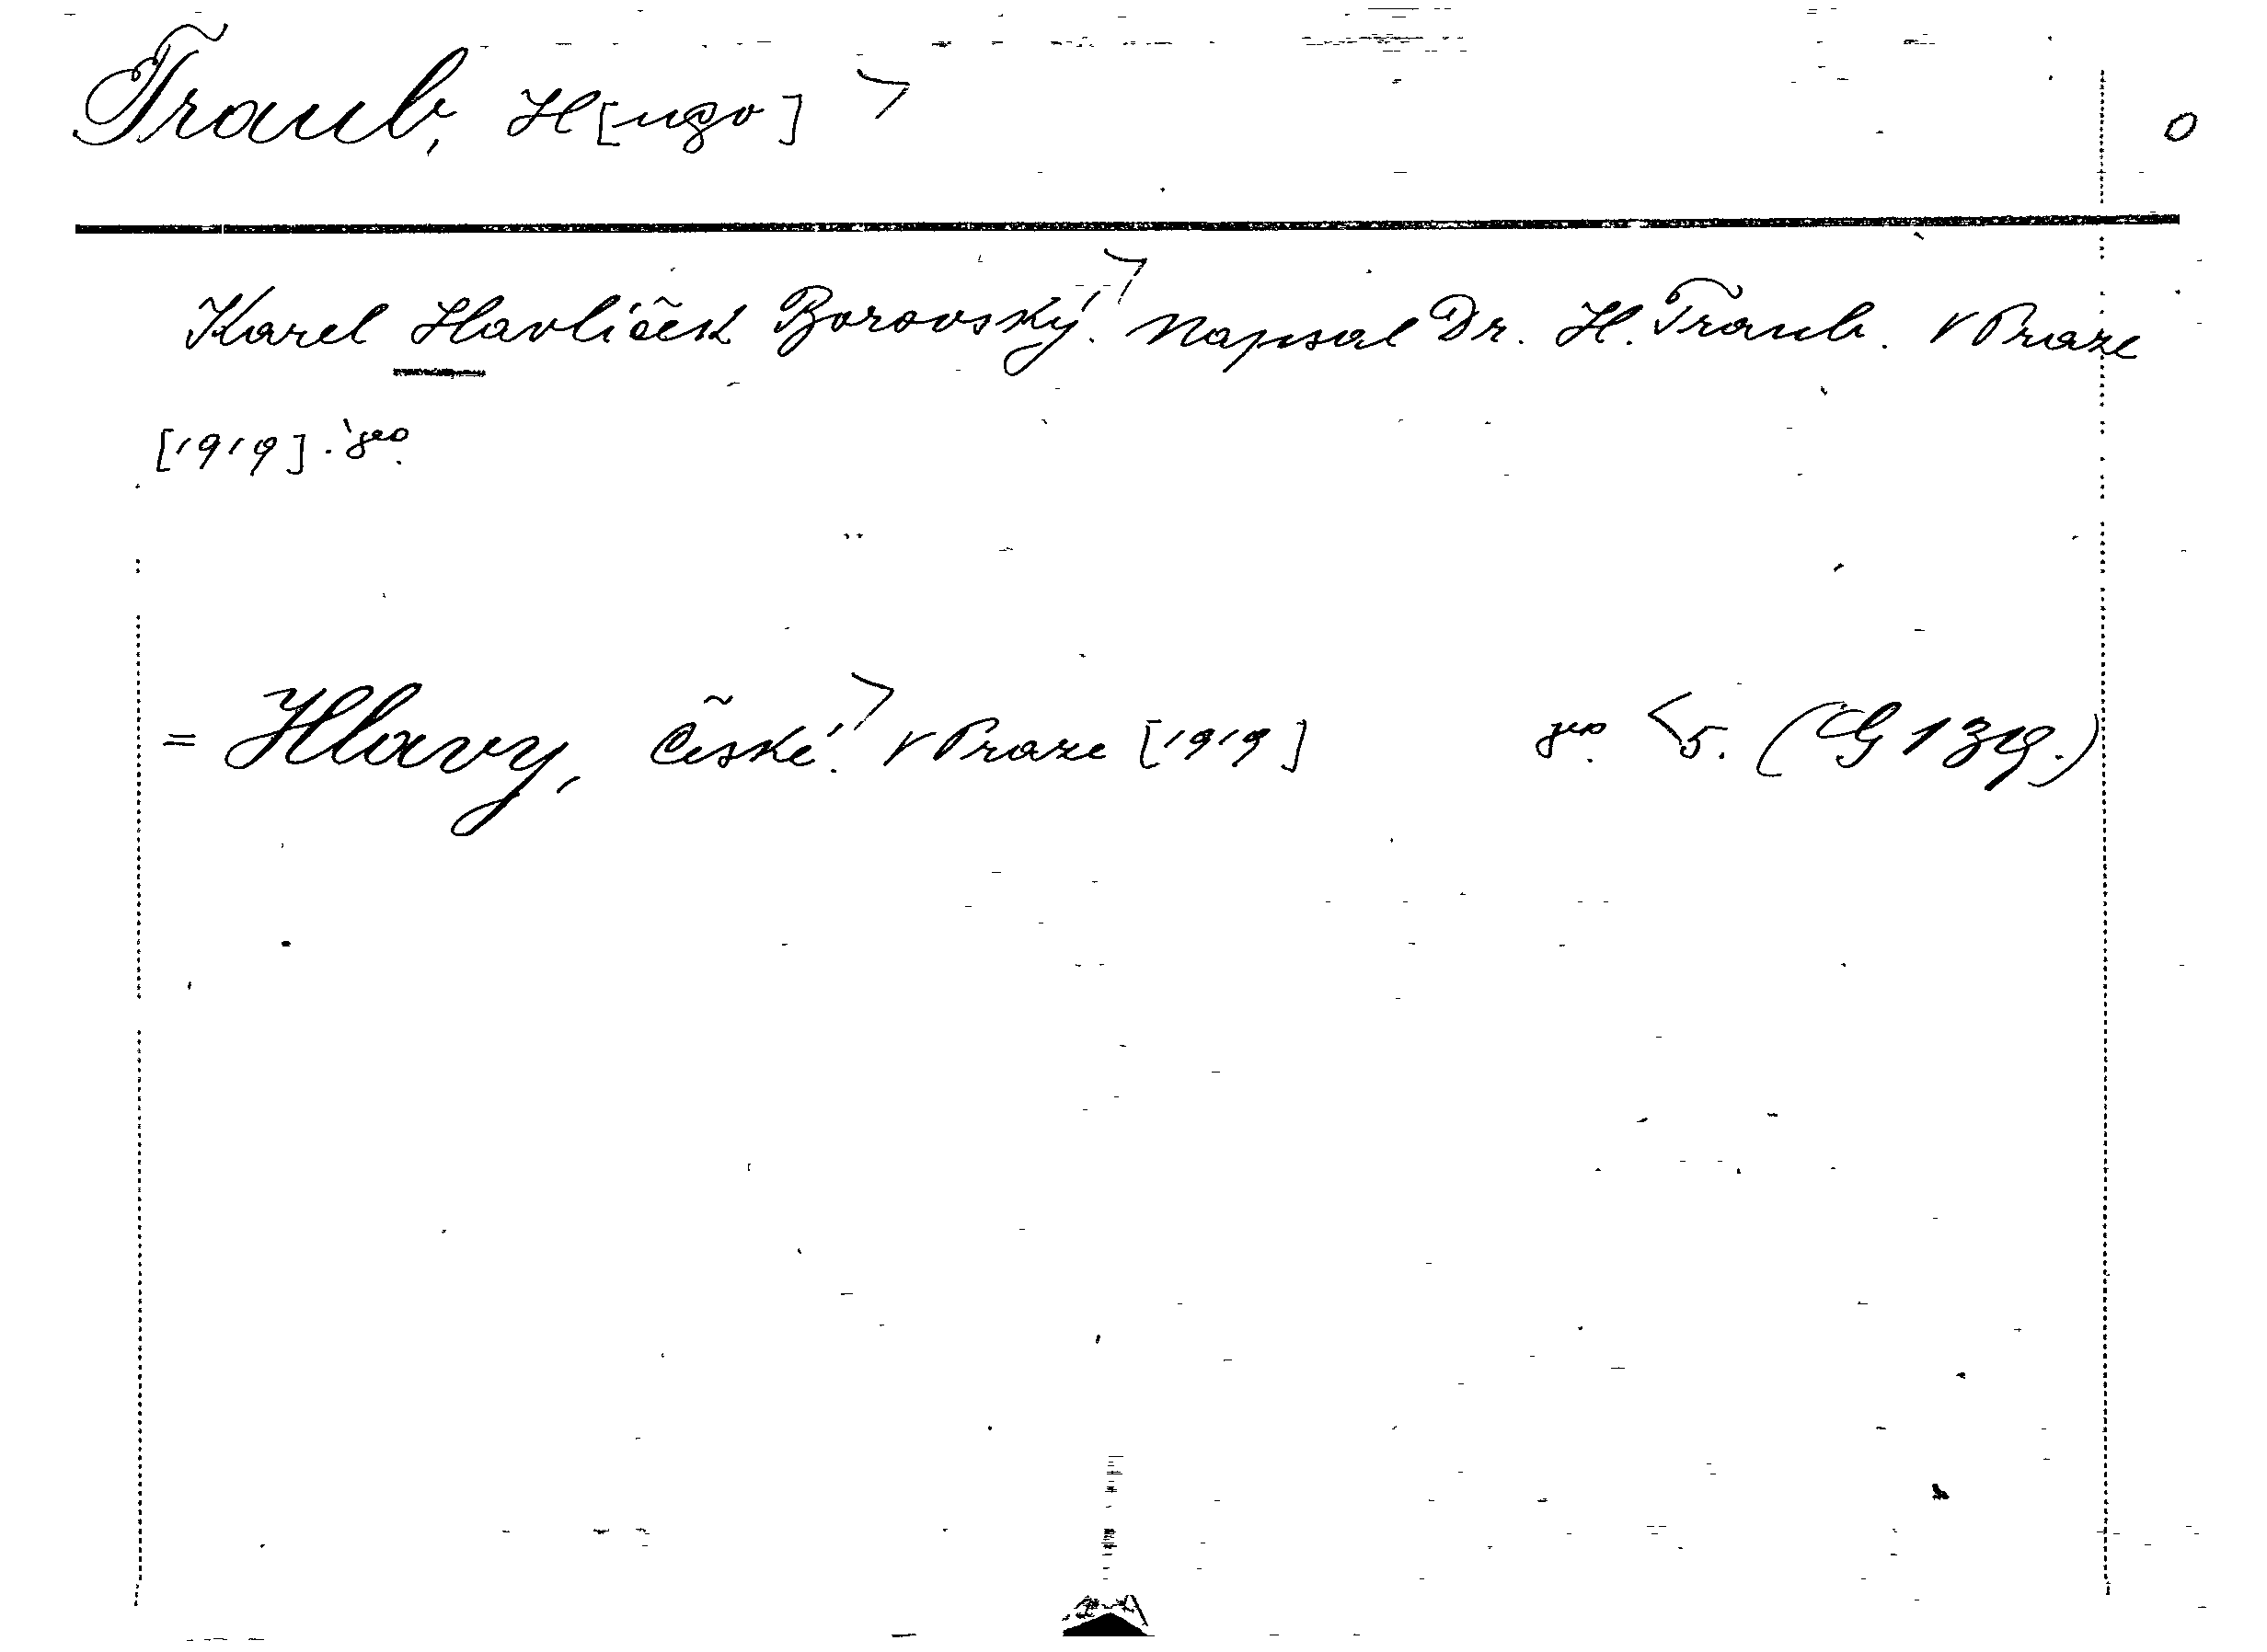 Traub, H[ugo] 0
Karel Havlíček Borovský. Napsal Dr. H. Traub. V Praze
[1919]. 8°.
= Hlavy, České. V Praze [1919] 8°. 5. (G 139.)